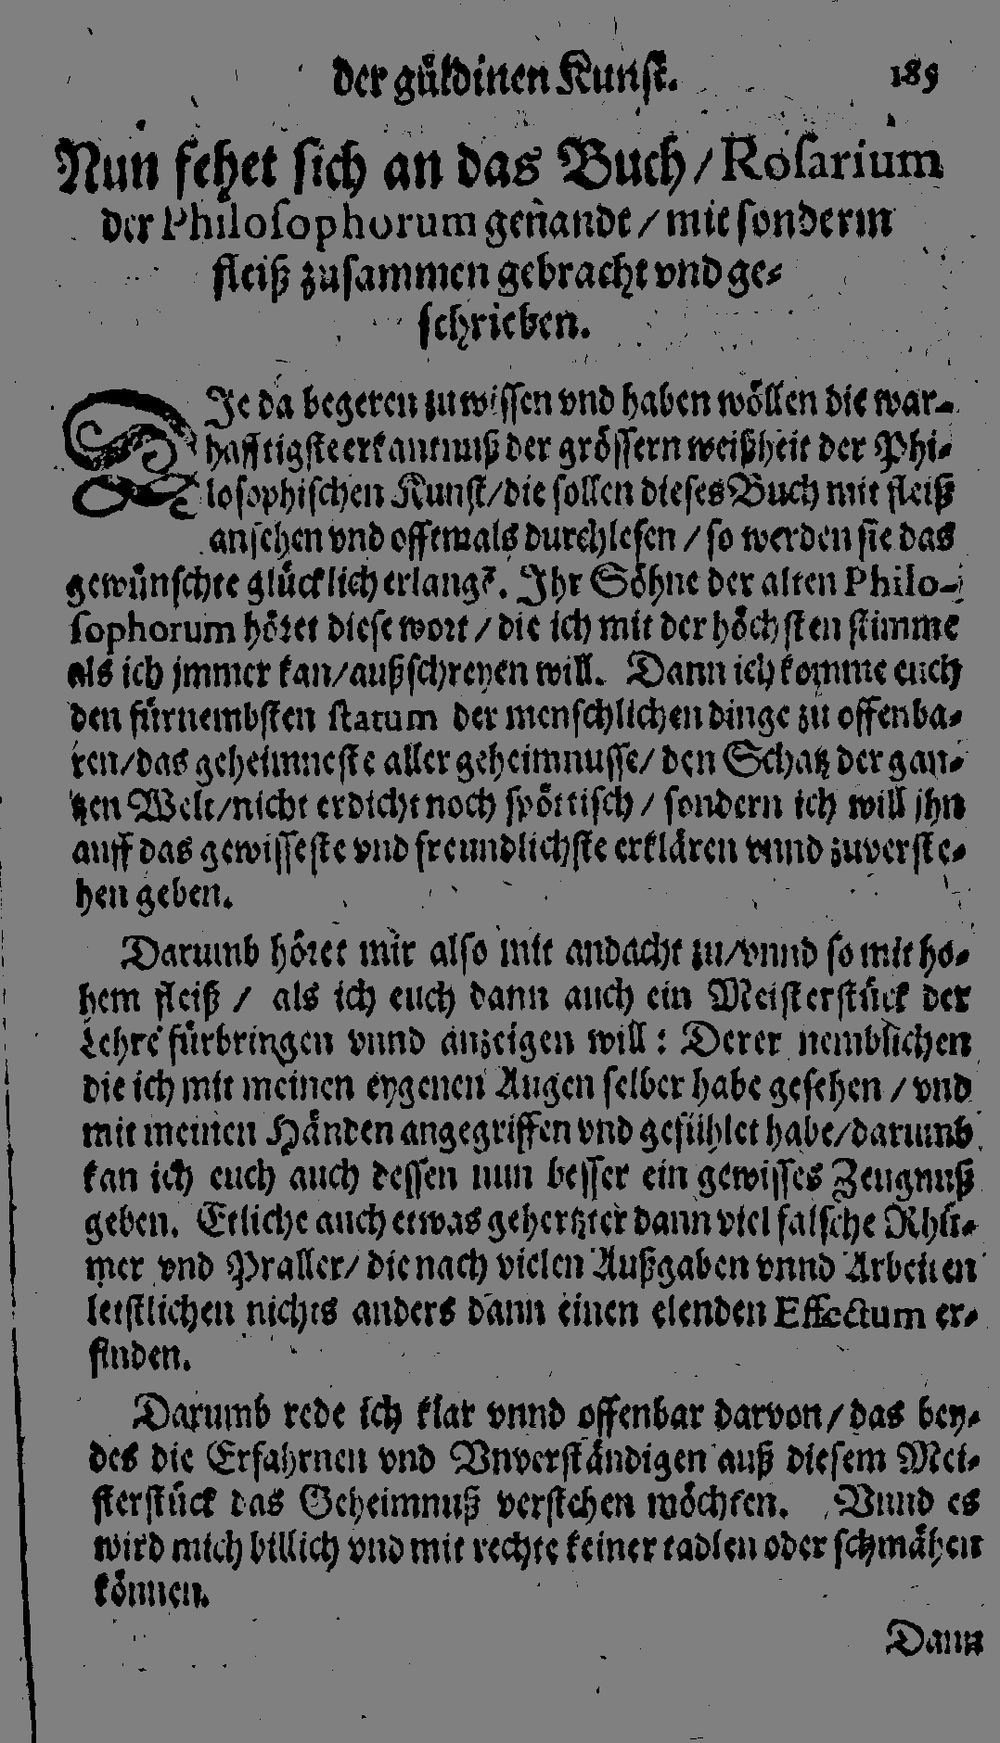 der güldinen Kunst. 189
Nun fehet sich an das Buch / Rosarium
der Philosophorum geñandt / mit sonderm
fleiß zusammen gebracht vnd ge-
schrieben.
DIe da begeren zu wissen vnd haben wöllen die war-
hafftigste erkantnuß der grössern weißheit der Phi-
losophischen Kunst/die sollen dieses Buch mit fleiß
ansehen vnd offtmals durchlesen / so werden sie das
gewünschte glücklich erlangē. Ihr Söhne der alten Philo-
sophorum höret diese wort / die ich mit der höchsten stimme
als ich jmmer kan/außschreyen will. Dann ich komme euch
den fürnembsten statum der menschlichen dinge zu offenba-
ren/das geheimneste aller geheimnusse/ den Schatz der gan-
tzen Welt/nicht erdicht noch spöttisch / sondern ich will jhn
auff das gewisseste vnd freundlichste erklären vnnd zuverste-
hen geben.
Darumb höret mir also mit andacht zu/vnnd so mit ho-
hem fleiß / als ich euch dann auch ein Meisterstück der
Lehre fürbringen vnnd anzeigen will: Derer nemblichen
die ich mit meinen eygenen Augen selber habe gesehen / vnd
mit meinen Händen angegriffen vnd gefühlet habe/darumb
kan ich euch auch dessen nun besser ein gewisses Zeugnuß
geben. Etliche auch etwas gehertzter dann viel falsche Rhü-
mer vnd Praller/ die nach vielen Außgaben vnnd Arbeiten
letstlichen nichts anders dann einen elenden Effectum er-
finden.
Darumb rede ich klar vnnd offenbar darvon/das bey-
des die Erfahrnen vnd Vnverständigen auß diesem Mei-
sterstück das Geheimnuß verstehen möchten. Vnnd es
wird mich billich vnd mit rechte keiner tadlen oder schmähen
können.
Dann